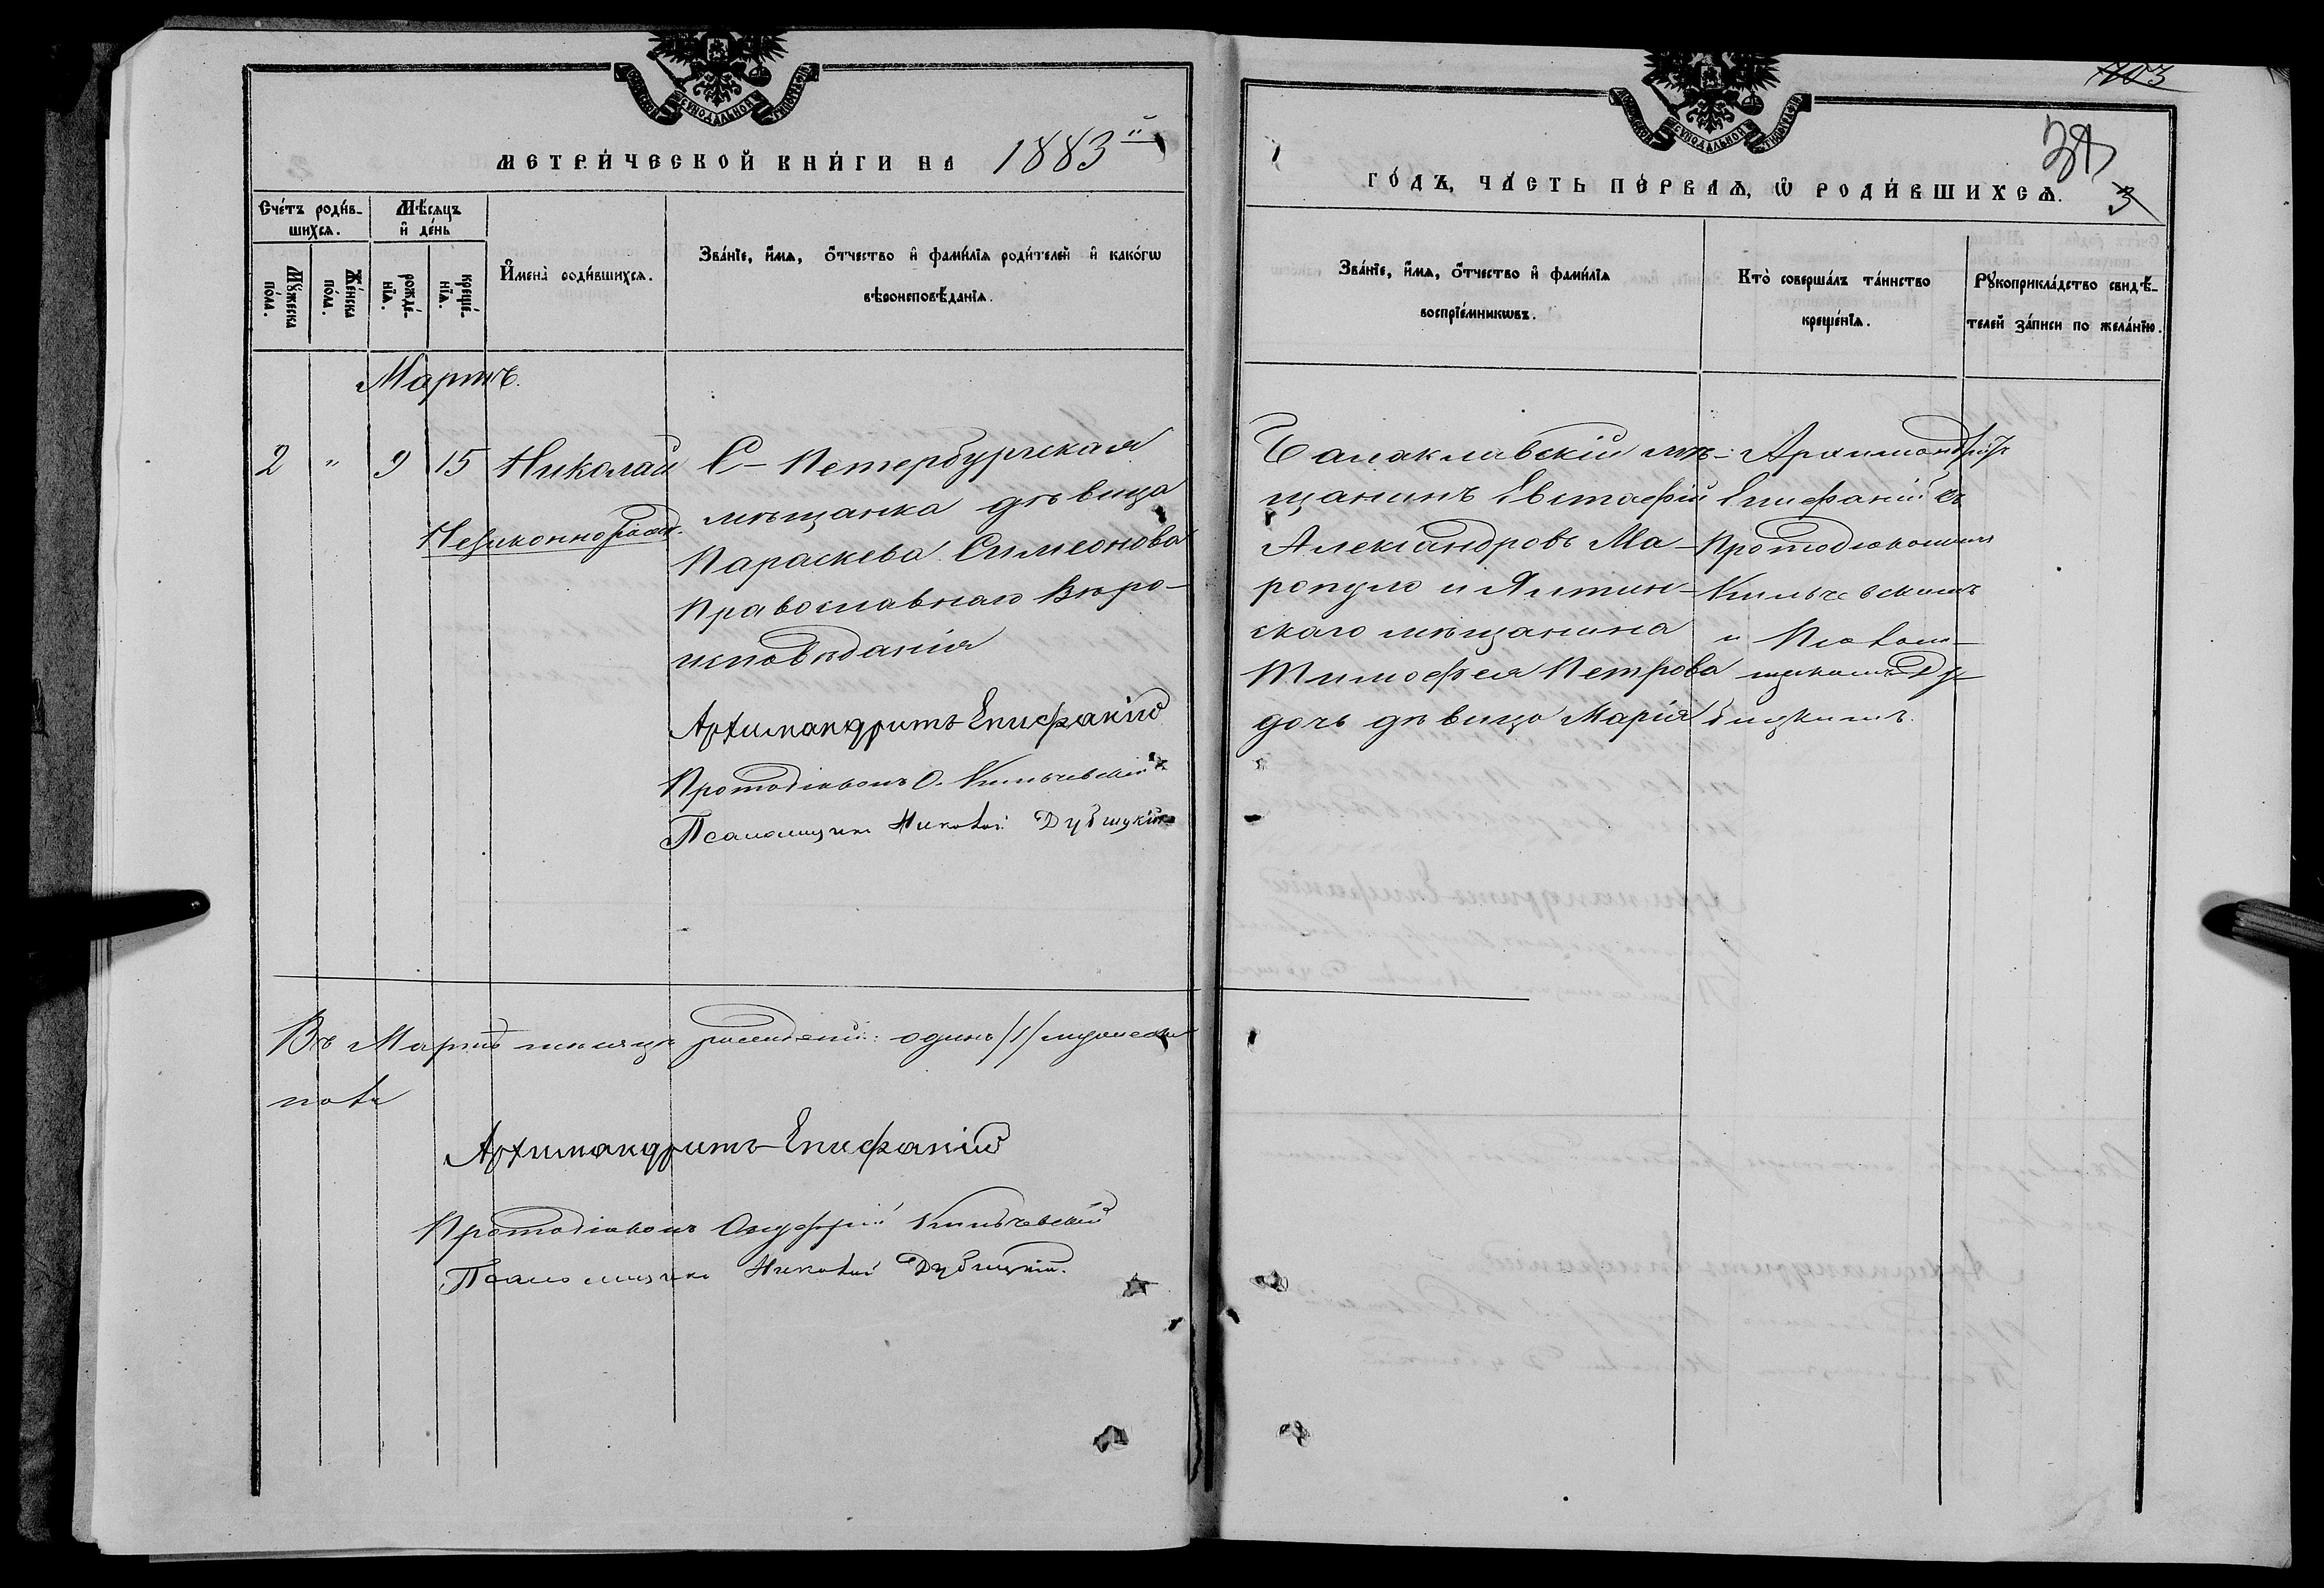 МОСКОВСКОЙ СѴНОДАЛЬНОЙ ТИПОГРАФІИ
МЕТРИ́ЧЕСКОЙ КНИ́ГИ НА 1883й
Сче́тъ роди́в-
шихсѧ.
Мѣ́сѧцъ
и҆ де́нь
Мꙋ́жеска
по́ла.
Же́нска
по́ла.
рожде́-
нїѧ.
креще́-
нїѧ.
И҆мена̀ роди́вшихсѧ.
Зва́нїе, и҆́мѧ, ѻ҆́тчество и҆ фами́лїѧ роди́телей и҆ како́гѡ
вѣроисповѣ́данїѧ.
Мартъ.
2 " 9 15 Николай
Незаконнорожд.
С-Петербургская
мѣщанка дѣвица
Параскева Симеонова
Православнаго Вѣро-
исповѣданія
Архимандритъ Епифаній
Протодіаконъ О. Кильчевскій
Псаломщикъ Николай Дубицкій
Въ Мартѣ мѣсяцѣ рожденій: одинъ /1/ мужеска
пола
Архимандритъ Епифаній
Протодіаконъ Онуфрій Кильчевскій
Псаломщикъ Николай Дубицкій.
МОСКОВСКОЙ СѴНОДАЛЬНОЙ ТИПОГРАФІИ
103
ГО́ДЪ, ЧА́СТЬ ПЕ́РВАѦ, Ѡ҆ РОДИ́ВШИХСѦ.
3
Зва́нїе, и҆́мѧ, ѻ҆́тчество и҆ фами́лїѧ
воспрїе́мникѡвъ.
Кто̀ соверша́лъ та́инство
креще́нїѧ.
Рꙋкоприкла́дство свидѣ́-
телей за́писи по жела́нїю.
Балаклавскій мѣ-
щанинъ Евстафій
Александровъ Ма-
ропуло и Ялтин-
скаго мѣщанина
Тимофея Петрова
дочь дѣвица Марія
Архимандритъ
Епифаній съ
Протодіакономъ
Кильчевскимъ
и Псалом-
щикомъ Ду-
бицкимъ.